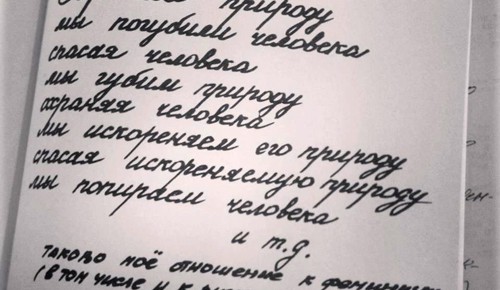 природу
мы погубили человека
спасая человека
мы губим природу
охраняя человека
мы искореняем его природу
спасая искореняемую природу
мы попираем человека
и т.д.
таково моё отношение к
(в том числе и к